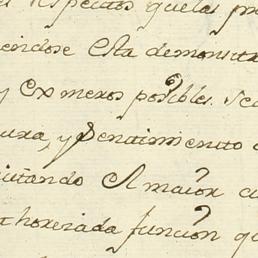 respectos que las pr
ciendose Esta demonstra
y Exmeros posibles. Sea
ura, y Sentimiento
cutando El maior cu
thoreriada funcion qu